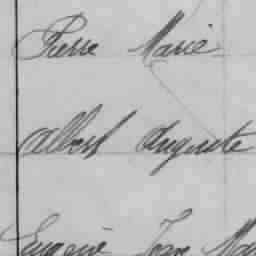 Pierre Marie
Albert Auguste
Eugène Jean Ma